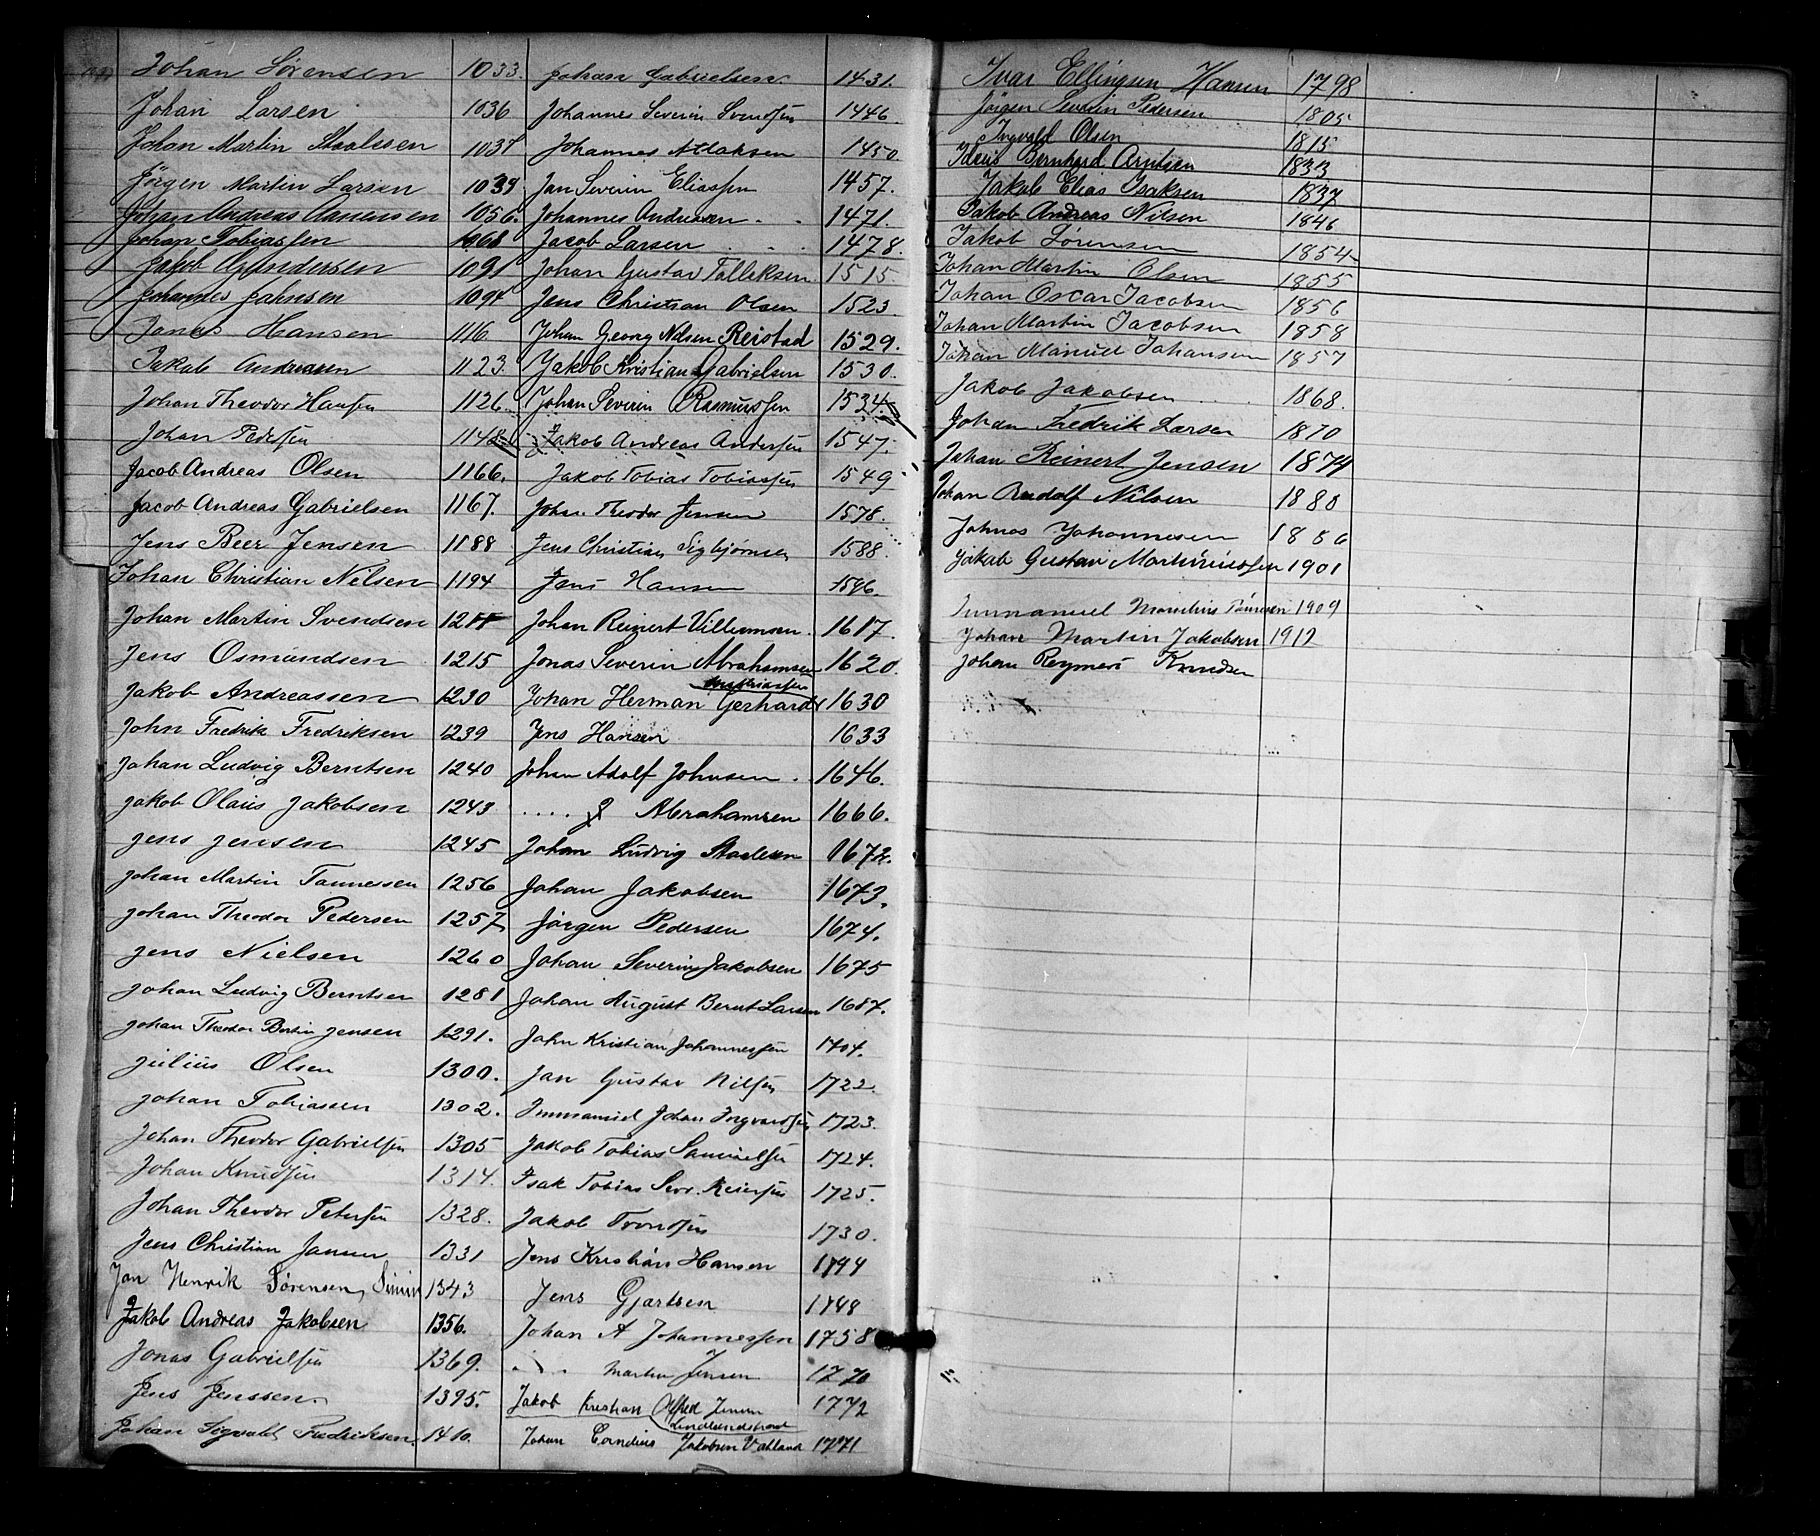 Johan Sørensen 1033.
Johan Larsen 1036
Johan Martin Staalesen 1037
Jörgen Martin Larsen 1039
Johan Andreas Aanensen 1056.
Johan Tobiassen 1068
Jacob Gundersen 1091
Johannes Johnsen 1094
Jonas Hansen 1116.
Jakob Andreasen 1123.
Johan Theodor Hansen 1126.
Johan Pedersen 1142
Jacob Andreas Olsen 1166.
Jacob Andreas Gabrielsen 1167.
Jens Beer Jensen 1188
Johan Christian Nilsen 1194
Johan Martin Svendsen 1211
Jens Osmundsen 1215
Jakob Andreassen 1230
John Fredrik Fredriksen 1239
Johan Ludvig Berntsen 1240
Jakob Olaus Jakobsen 1243
Jens Jensen 1245
Johan Martin Tønnessen 1256
Johan Theodor Pedersen 1257
Jens Nielsen 1260
Johan Ludvig Berntsen 1281
Johan Theodor Bertin Jensen 1291.
Julius Olsen 1300.
Johan Tobiassen 1302.
Johan Theodor Gabrielsen 1305
Johan Knudsen 1314.
Johan Theodor Petersen 1328.
Jens Christian Jansen 1331
Jan Henrik Sørensen, 1343
Jakob Andreas Jakobsen 1356.
Jonas Gabrielsen 1369.
Jens Jenssen. 1395.
Johan Sigvald Fredriksen. 1410.
Johan Gabrielsen. 1431.
Johannes Severin Svendsen 1446.
Johannes Atlaksen 1450.
Jan Severin Eliassen 1457.
Johannes Andreasen . . 1471.
Jacob Larsen . . . 1478.
Johan Gustav Tolleksen 1515.
Jens Christian Olsen 1523.
Johan Georg Nilsen Reistad 1529.
Jakob Kristian Gabrielsen 1530.
Johan Severin Rasmussen 1534.
Jakob Andreas Andersen 1547.
Jakob Tobias Tobiassen 1549
Johan Theodor Jensen 1578.
Jens Christian Sigbjørnsen 1588.
Jens Hansen 1596.
Johan Reinert Villumsen. 1617.
Jonas Severin Abrahamsen 1620.
Johan Herman Gerhard 1630
Jens Hansen 1633
Johan Adolf Johnsen . 1646.
.... J Abrahamsen 1666.
Johan Ludvig Staalesen 1672.
Johan Jakobsen 1673.
Jörgen Pedersen 1674.
Johan Severin Jakobsen 1675
Johan August Bernt Larsen 1687.
John Kristian Johannessen 1704.
Jan Gustav Nilsen 1722.
Immanuel Johan Ingvardsen 1723.
Jakob Tobias Samuelsen 1724.
Isak Tobias Sevr. Reiersen 1725.
Jakob Trondsen 1730.
Jens Kristian Hansen 1744
Jens Gjertsen 1748
Johan A Johannessen 1758
. . . Martin Jensen 1770
Jakob Kristian Alfred Jensen 1772
Lindlandstrand
Johan Cornelius Jakobsen Vatland 1771
Ivar Ellingsen Hansen 1798
Jörgen Severin Pedersen 1805
Ingvald Olsen 1815
Bernhard Arntsen 1833
Jakob Elias Isaksen 1837
Jakob Andreas Nilsen 1846
Jakob Sørensen 1854
Johan Martin Olsen 1855
Johan Oscar Jacobsen 1856
Johan Martin Jacobsen 1858
Johan Manuel Johansen 1857
Jakob Jakobsen 1868.
Johan Fredrik Larsen 1870
Johan Reinert Jensen 1874
Johan Rudolf Nilsen 1880
Johnas Johannesen 1886
Jakob Gustav Martiniussen 1901
Immanuel Tønnesen 1909
Johan Martin Jakobsen 1912
Johan Reymert Knudsen